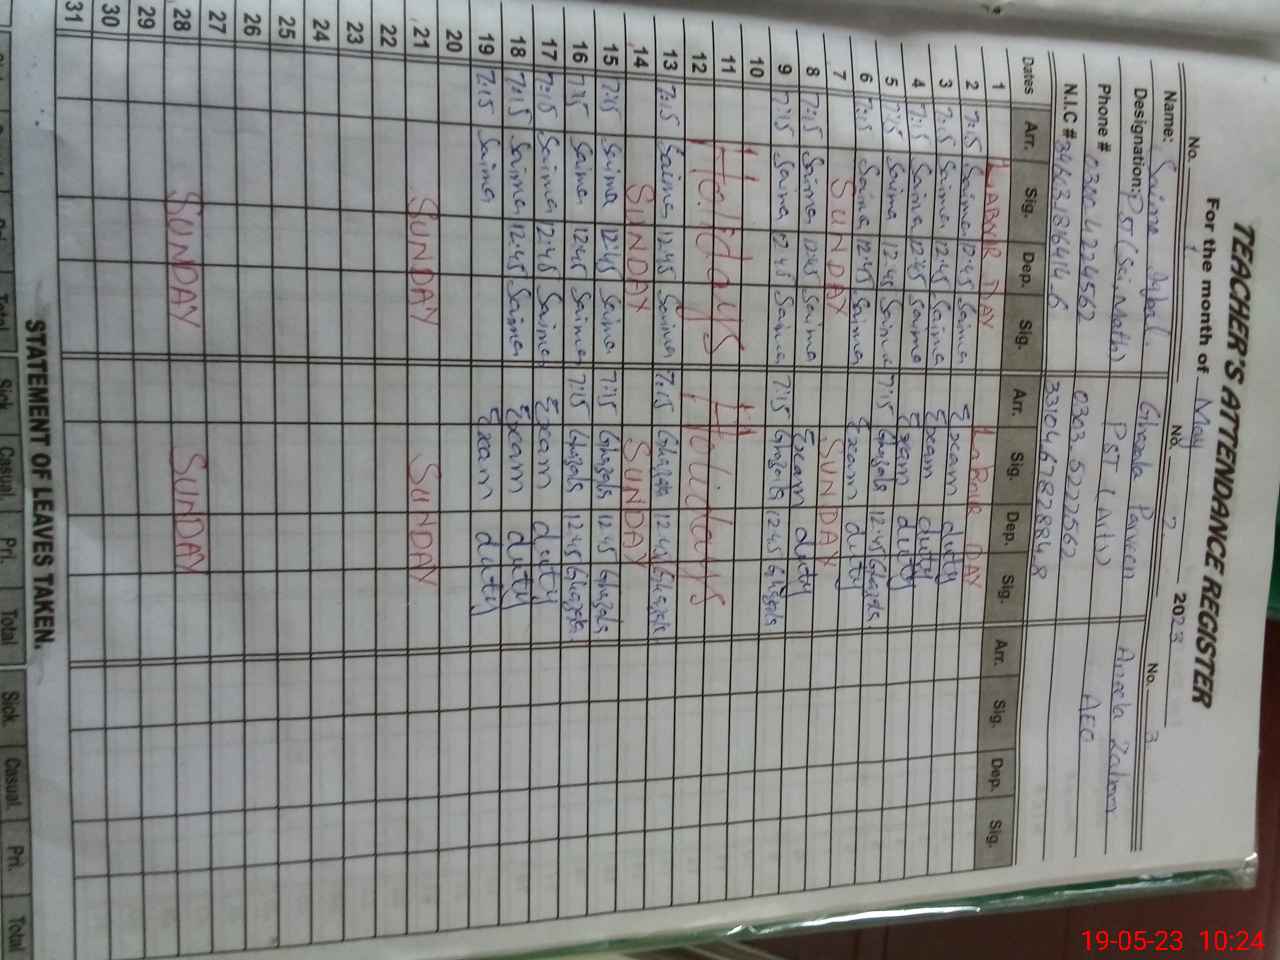 TEACHER'S ATTENDANCE REGISTER
For the month of May 2023
No. 1 No. 2 No. 3
Name: Saima Iqbal. Ghazala Parveen Aneela
Designation: PST (Sci, Math) PST (Arts) AEO
Phone # 0300 4224562 0303. 5222562
N.I.C #
Dates Arr. Sig. Dep. Sig. Arr. Sig. Dep. Sig. Arr. Sig. Dep. Sig.
1 LABOUR DAY LABOUR DAY
2 7:15 Saima 12:45 Saima Exam duty
3 7:15 Saima 12:45 Saima Exam duty
4 7:15 Saima 12:45 Saima Exam duty
5 7:15 Saima 12:45 Saima 7:15 Ghazala 12:45 Ghazala
6 7:15 Saima 12:45 Saima Exam duty
7 SUNDAY SUNDAY
8 7:15 Saima 12:45 Saima Exam duty
9 7:15 Saima 12:45 Saima 7:15 Ghazala 12:45 Ghazala
10
11 Holidays Holidays
12
13 7:15 Saima 12:45 Saima 7:15 Ghazala 12:45 Ghazala
14 SUNDAY SUNDAY
15 7:15 Saima 12:45 Saima 7:15 Ghazala 12:45 Ghazala
16 7:15 Saima 12:45 Saima 7:15 Ghazala 12:45 Ghazala
17 7:15 Saima 12:45 Saima Exam duty
18 7:15 Saima 12:45 Saima Exam duty
19 7:15 Saima Exam duty
20
21 SUNDAY SUNDAY
22
23
24
25
26
27
28 SUNDAY SUNDAY
29
30
31
STATEMENT OF LEAVES TAKEN.
Total Sick Casual Pri. Total Sick Casual Pri. Total
19-05-23 10:24